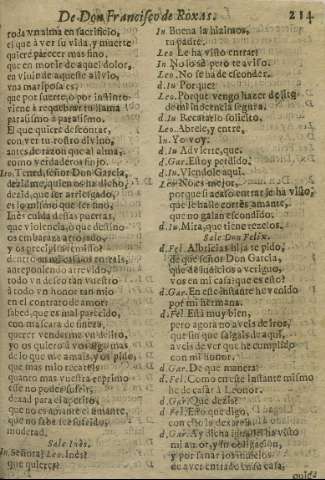 De Don Francisco de Roxas. 214
toda vn alma en sacrificio,
el que à ver su vida, y muerte
quiere parecer mas fino,
que en morir de aquel dolor,
en viuir de aqueste aliuio,
vna mariposa es,
que por suerte, o por instinto
viene à requebrar tu llama
parasismo à parasismo.
El que quiere descontar,
con ver tu rostro divino,
antes de razon que al alma,
como verdaderos finjo.
Leo. Tened, señor Don Garcia,
dezidme, quien os ha dicho
dezid, que ser arriesgado
es lo mismo que ser fino;
Inès cuida destas puertas,
que violencia, o que destino
os embarara arrojado,
y os precipitò remisso
dentro en mi casa os entrais,
anteponiendo atrevido,
todo vn deseo tan vuestro
à todo vn honor tan mio
en el contraro de amor:
sabed, que es mal parecido,
con mascara de fineza,
querer venderme vn delito,
yo os quiero à vos algo mas
de lo que me amais, y os pido,
que mas mio recateis
quanto mas vuestra reprimo
esse no poder sufrir,
dexad para el apetito,
que no es amante el amante,
que no sabe ser sufrido,
moderad.
Sale Inès.
In. Señora? Leo. Inès?
que quieres?
In. Buena la hizimos,
tu padre.
Leo. Le ha visto entrar?
In. No lo sè pero te aviso.
Leo. No se ha de esconder.
d. In. Por que?
Leo. Porque vengo hazer
de mi inocencia segura.
d. In. Recatarlo solicito.
Leo. Abrele, y entre.
In. Yo voy.
d. In. Advierte, que.
d. Gar. Estoy perdido.
d. In. Viendole aqui.
Leo. No es mejor,
por que si acaso entrar le ha visto,
que le halle cortès amante,
que no galan escondido.
d. In. Mira, que tiene rezelos.
Sale Don Felix.
d. Fel. Albricias hija te pido,
de que señor Don Garcia,
que de indicios averiguo,
vos en mi casa: que es esto?
d. Gar. En este instante he venido
por mi hermana.
d. Fel. Està muy bien,
pero agora no aveis de iros,
que sin que salgais de aqui,
aveis de ver que he cumplido
con mi honor.
d. Gar. De que manera?
d. Fel. Como en este instante mismo
he de casar à Leonor.
d. Gar. Que dezis?
d. Fel. Esto que digo,
con esso la dexareis.
d. Gar. Ay dicha igual! es ha visto
mi amor, y su obligacion,
y por sanar los rezelos
de aver entrado en su casa,